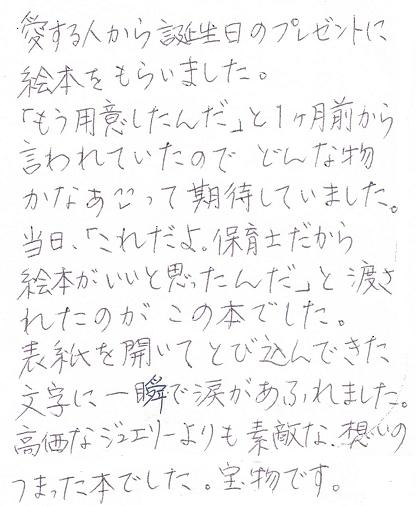 愛する人から誕生日のプレゼントに
絵本をもらいました。
「もう用意したんだ」と1ヶ月前から
言われていたので どんな物
かなあごって期待していました。
当日、「これだよ。保育士だから
絵本がいいと思ったんだ」と渡さ
れたのがこの本でした。
表紙を開いてとび込んできた
文字に一瞬で涙があふれました。
高価なジュエリーよりも素敵な、想いの
つまった本でした。宝物です。